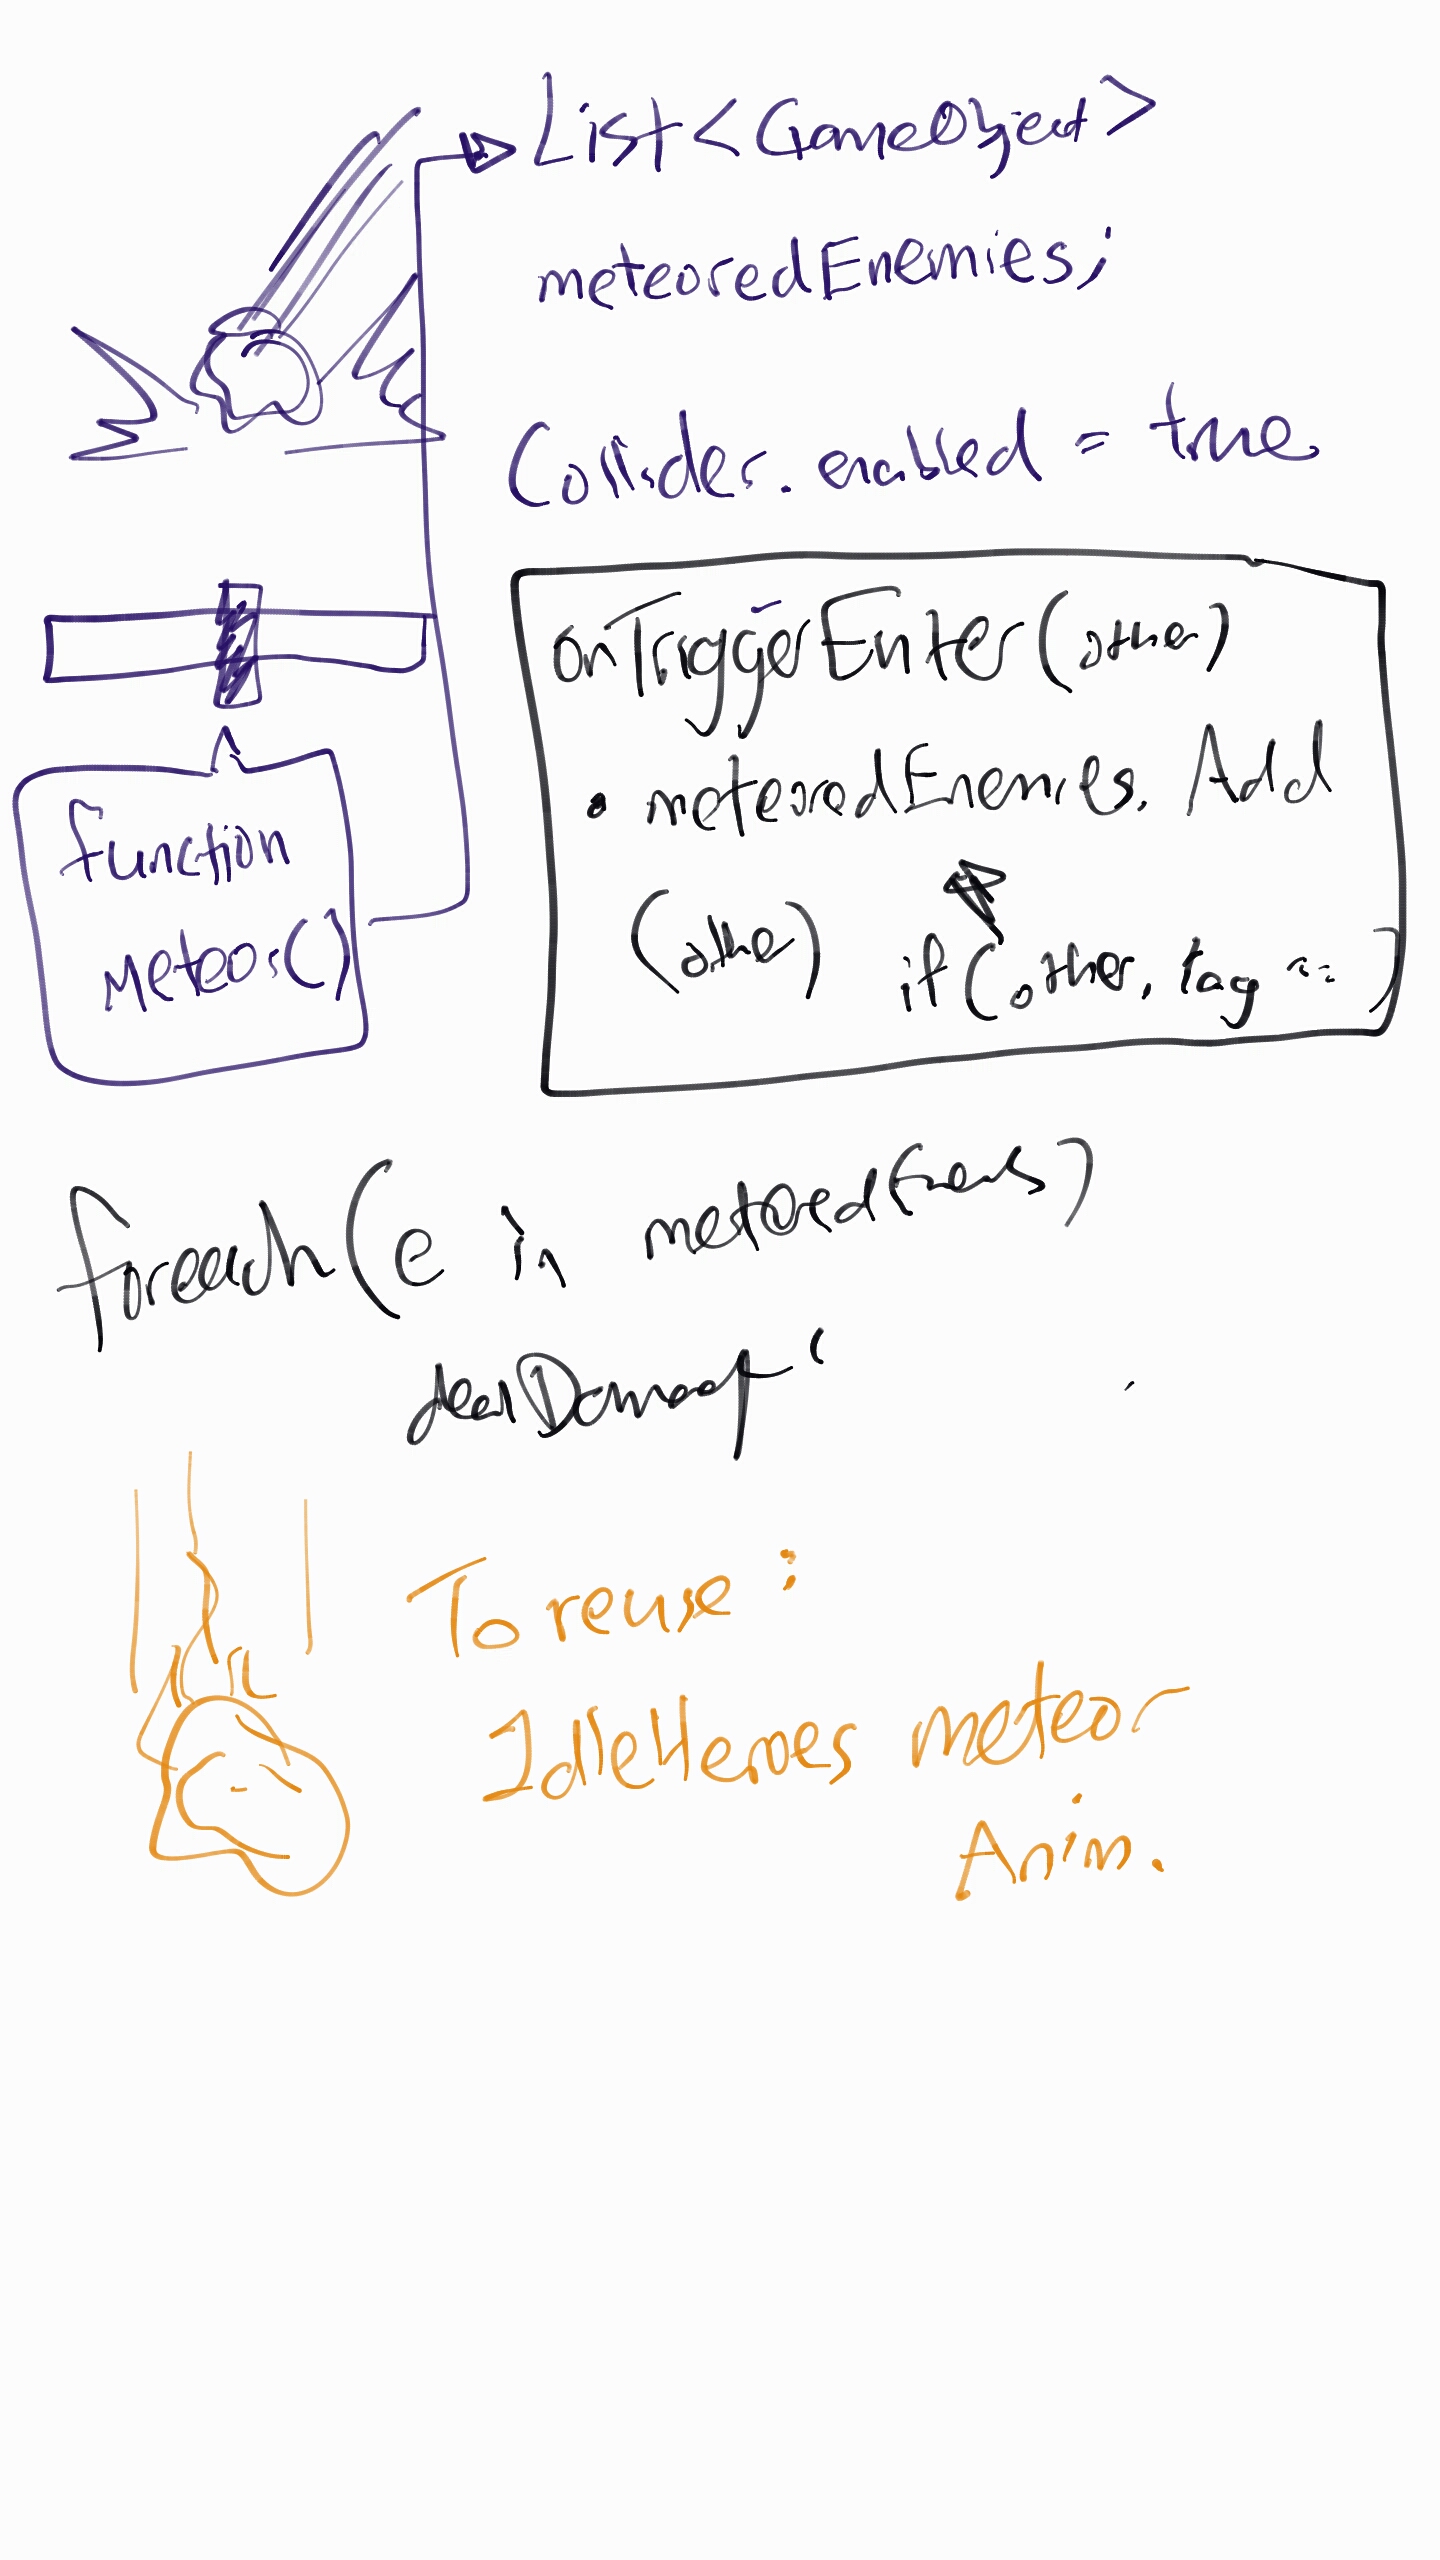 List<GameObject>
meteoredEnemies;
Collider.enabled = true
function
Meteor()
onTriggerEnter(other)
• meteoredEnemies. Add
(other)
if(other. tag == )
foreach(e in meteoredEnemies)
dealDamage(
To reuse:
IdleHeroes meteor
Anim.